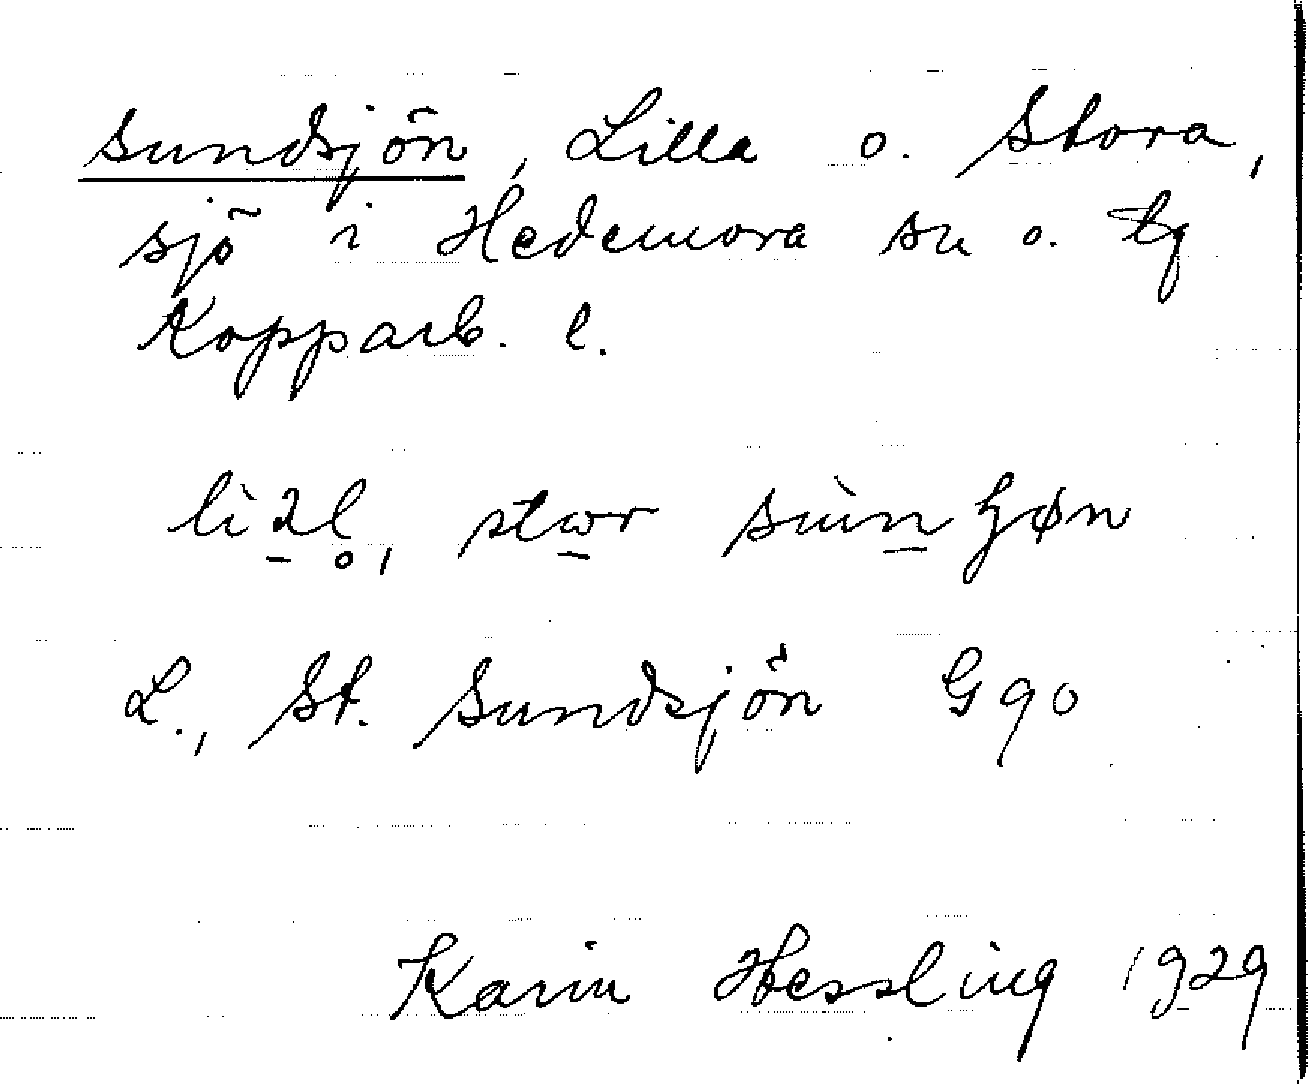 Sundsjön, Lilla o. Stora,
sjö i Hedemora sn o. tg
Kopparb. l.
L., St. Sundsjön G90
Karin Hessling 1929